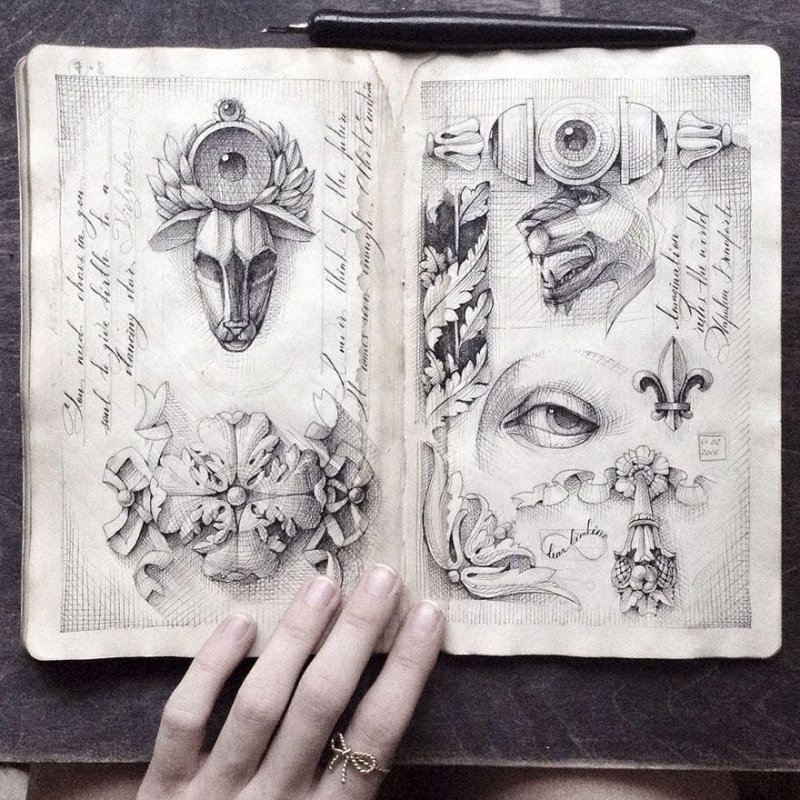 You need chaos in you
soul to give birth to a
dancing star
Nietzsche
I never think of the future
It comes soon enough. Albert Einstein
Imagination
rules the world
Napoleon Bonaparte
2016